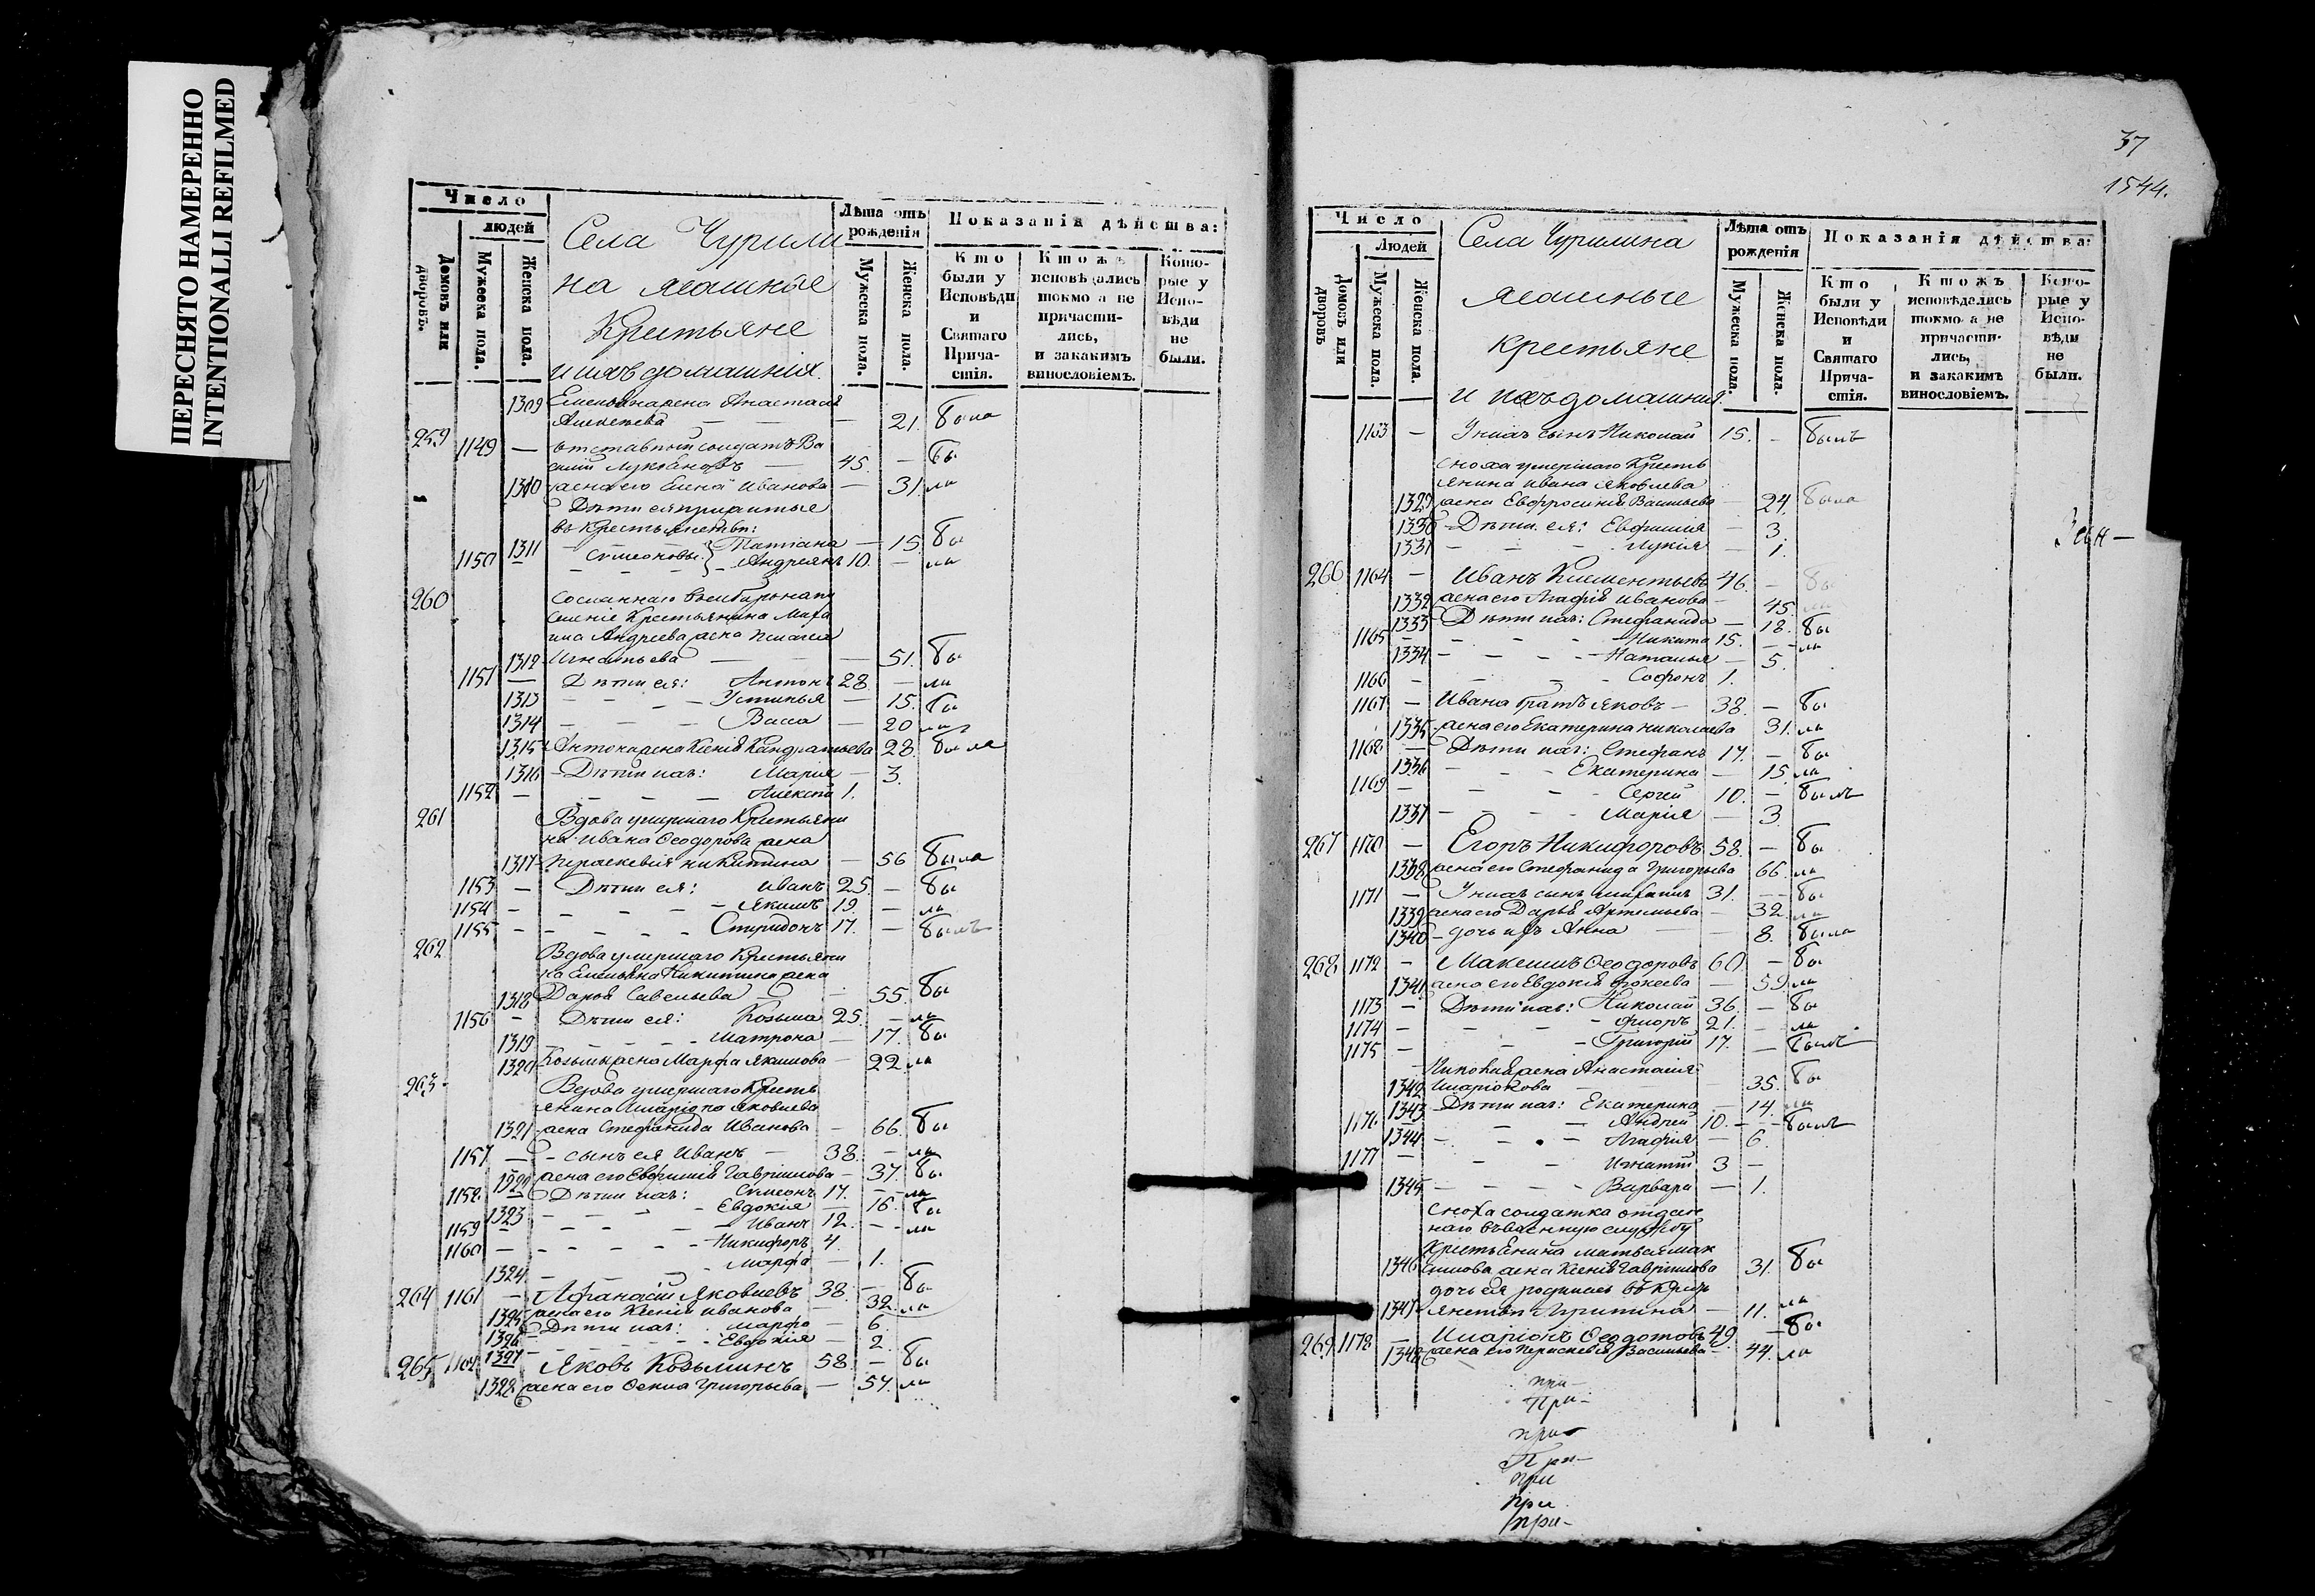 ПЕРЕСНЯТО НАМЕРЕННО
INTENTIONALLI REFILMED
Число
людей
Домовъ или дворовъ.
Мужеска пола.
Женска пола.
Села Чурили
на ясашные
Крестьяне
и ихъ домашнія.
Лѣта отъ рожденія
Мужеска пола.
Женска пола.
Показанія дѣйства:
Кто были у Исповѣди и Святаго Причастія.
Ктожъ исповѣдались токмо а не причастились, и закакимъ винословіемъ.
Которые у Исповѣди не были.
1309 Емельяна жена Анастасія
Алексѣева — — — 21. была
259 1149 — отставный солдатъ Ва
силій Лукіановъ — 45. — бы
1310 жена его Елена Иванова — 31. ли
Дѣти ея прижитыя
въ крестьянствѣ:
1311 Симеоновы Татіана — 15. бы
1150 — Андреянъ 10. — ли
260
Крестьянина Миха
ила Андреева жена Пелагея
1312 Игнатьева — — 51. бы
1151 — Дѣти ея: Антонъ 28. — ли
1313 — — — Устинья — 15. бы
1314 — — — Васса — 20 ли
1315 Антона жена Ксенія Кандратьева 28. были
1316 — Дѣти ихъ: Марія — 3.
1152 — — — — Алексѣй 1.
261 Вдова умершаго Крестьяни
на Ивана Ѳеодорова жена
1317 Параскевія Никитина — 56 была
1153 — Дѣти ея: Иванъ 25. — бы
1154 — — — — Якимъ 19. — ли
1155 — — — — Спиридонъ 17. — былъ
262 Вдова умершаго Крестьяни
на Емельяна Никитина жена
1318 Дарья Савельева — — 55. бы
1156 — Дѣти ея: Козьма 25. — ли
1319 — — — Матрона — 17. бы
1320 Козьмы жена Марфа Якимова — 22. ли
263 Вдова умершаго Кресть
янина Иларіона Яковлева
1321 жена Стефанида Иванова — 66. бы
1157 — сынъ ея Иванъ — 38. — ли
1322 жена его Евфимія Гавриилова — 37. бы
1158 — Дѣти ихъ: Симеонъ 17. — ли
1323 — — — Евдокія — 16. бы
1159 — — — — Иванъ 12. — ли
1160 — — — — Никифоръ 4.
1324 — — — Марфа — 1.
264 1161 — Афанасій Яковлевъ 38. — бы
1325 жена его Ксенія Иванова — 32. ли
1326 Дѣти ихъ: Марфа — 6.
1327 — — — Евдокія — 2.
265 1162 — Яковъ Козьминъ 58. — бы
1328 жена его Ѳекла Григорьева — 57. ли
37
1544.
Число
Людей
Домовъ или дворовъ
Мужеска пола.
Женска пола.
Села Чурилина
ясашные
крестьяне
и ихъ домашнія.
Лѣта отъ рожденія
Мужеска пола.
Женска пола.
Показанія дѣйства:
Кто были у Исповѣди и Святаго Причастія.
Ктожъ исповѣделись токмо а не причастились, и закакимъ винословіемъ.
Которые у Исповѣди не были.
1163 — У нихъ сынъ Николай 15. — былъ
сноха умершаго Кресть
янина Ивана Яковлева
1329 жена Евфросинія Васильева — 24. была
1330 — Дѣти ея: Евфимія — 3.
1331 — — — Лукія — 1.
266 1164 — Иванъ Климентьевъ 46. — бы
1332 жена его Агафія Иванова — 45. ли
1333 Дѣти ихъ: Стефанида — 18. бы
1165 — — — Никита 15. — ли
1334 — — — Наталья — 5.
1166 — — — Софонъ 1.
1167 — Ивана братъ Яковъ — 38. — бы
1335 жена его Екатерина Николаева 31. ли
1168 — Дѣти ихъ: Стефанъ 17. — бы
1336 — — — Екатерина — 15. ли
1169 — — — Сергей 10. — былъ
1337 — — — Марія — 3.
267 1170 — Егоръ Никифоровъ 58. — бы
1338 жена его Стефанида Григорьева 66. ли
1171 — У нихъ сынъ 31. — бы
1339 жена его Дарья Артемьева — 32. ли
1340 — дочь ихъ Анна — 8. была
268 1172 — Максимъ Ѳеодоровъ 60. — бы
1341 жена его Евдокія Фокеева — 59. ли
1173 — Дѣти ихъ: Николай 36. — бы
1174 — — — Флоръ 21. — ли
1175 — — — Григорій 17. — былъ
Николая жена Анастасія
1342 Иларіонова — 35. бы
1343 — Дѣти ихъ: Екатерина — 14. ли
1176 — — Андрей 10. — былъ
1344 — — — Агафія — 6.
1177 — — — Игнатій 3 —
1345 — — — Варвара — 1.
сноха солдатка отдан
наго въ военную службу
Крестьянина Матвея Мак
1346 симова жена Ксенія Гавриилова 31. бы
дочь ея родилась въ крест
1347 янствѣ Агрипина — 11. ли
269 1178 — Иларіонъ Ѳеодотовъ 49. — бы
1348 жена его Параскевія Васильева — 44. ли
при-
При-
при
При-
при
при
при-